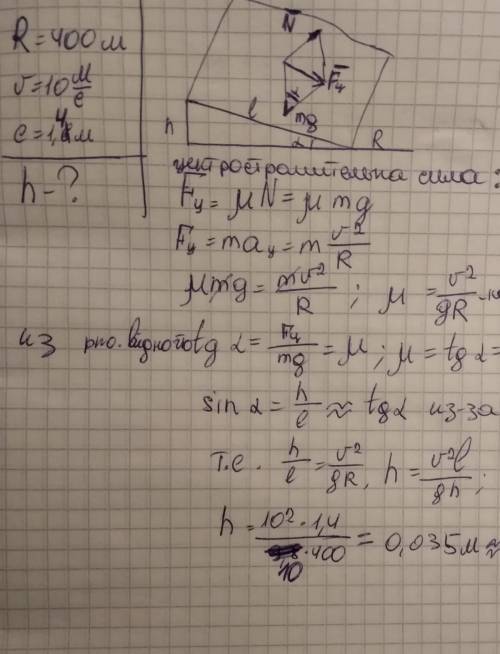 R = 400 м
υ = 10 м/с
e = 1,4 м
h - ?
N
Fц
mg
h
l
α
R
центростремительна сила:
Fц = μN = μmg
Fц = maц = m υ²/R
μmg = mυ²/R ; μ = υ²/gR
из рис. видно tg α = Fц/mg = μ ; μ = tg α =
sin α = h/l ≈ tg α из-за
т.е. h/l = υ²/gR, h = υ²l/gh ;
h = 10² · 1,4 / 10 · 400 = 0,035 м ≈